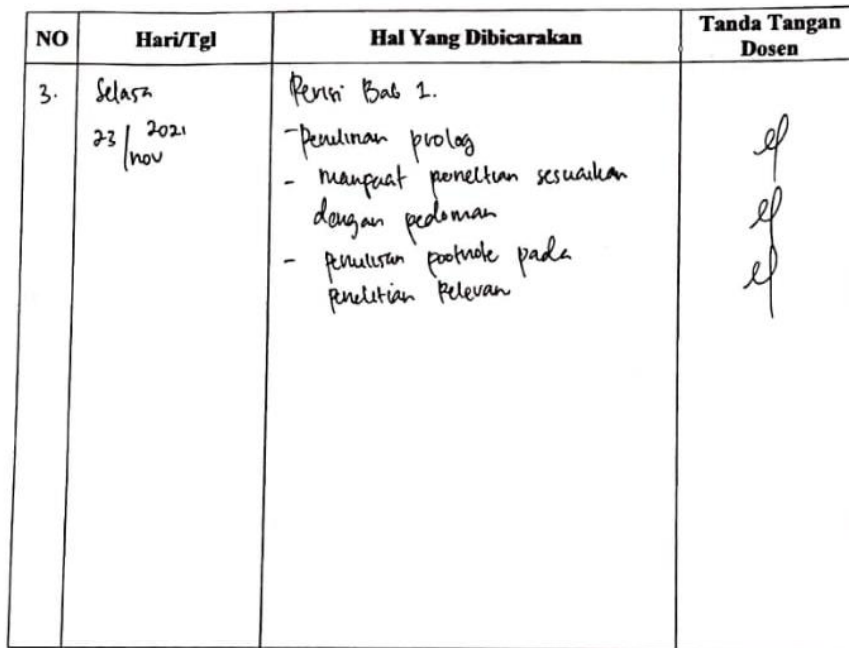 NO
Hari/Tgl
Hal Yang Dibicarakan
Tanda Tangan
Dosen
3.
Selasa
23/nov 2021
Revisi Bab 1.
- Penulisan prolog
- manfaat penelitian sesuaikan
dengan pedoman
- penulisan footnote pada
penelitian Relevan